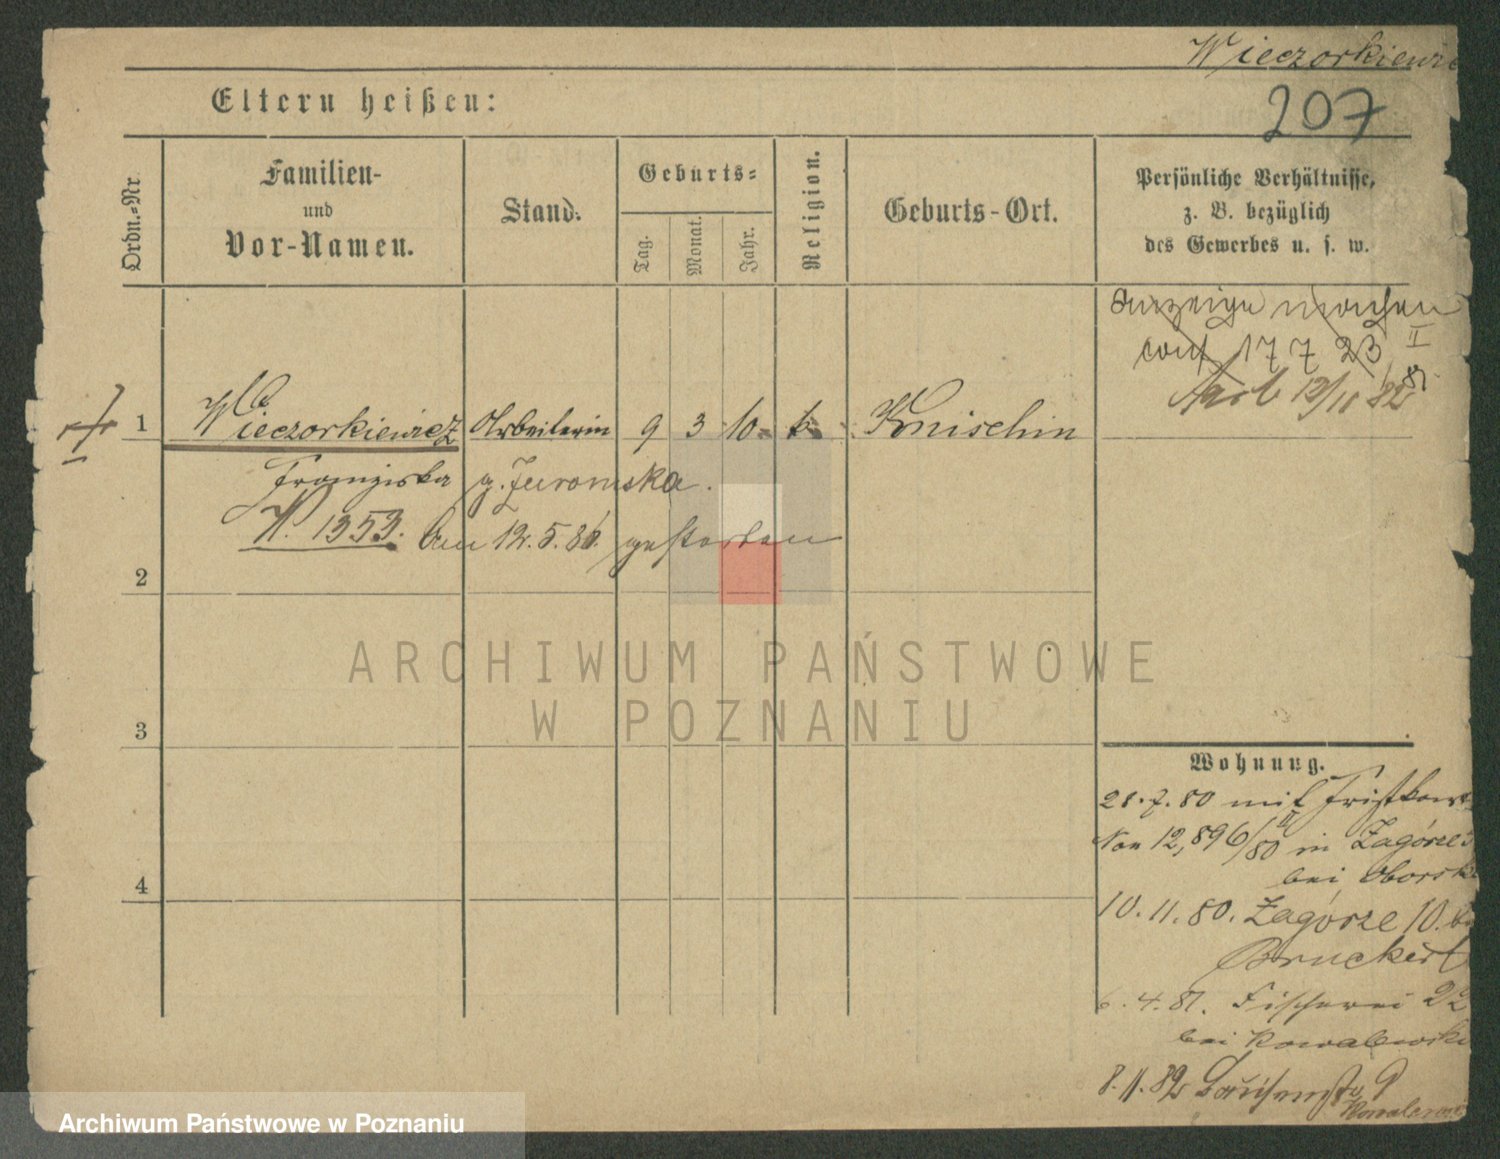 Wieczorkiewic
207
Eltern heißen:
Ordn.-Nr
Familien-
und
Vor-Namen.
Stand.
Geburts-
Tag.
Monat.
Jahr.
Religion.
Geburts-Ort.
Persönliche Verhältnisse,
z. B. bezüglich
des Gewerbes u. s. w.
Anzeige machen
17 7 23 II
81
12/11 82
1 Wwe Wieczorkiewicz Arbeiterin 9 3 10 k. Knischin
Franziska g. Juromska.
N. 1353. Am 12.5.86 gestorben
2
3
4
ARCHIWUM PAŃSTWOWE
W POZNANIU
Wohnung.
28.7.80 mit
Von 12,896/80 II in Zagórze
bei Oborsk
10.11.80. Zagórze 10. b
Bruckert
6.4.81. Fischerei 22
bei Kowalewski
8.11.82 9
Kowalewski
Archiwum Państwowe w Poznaniu